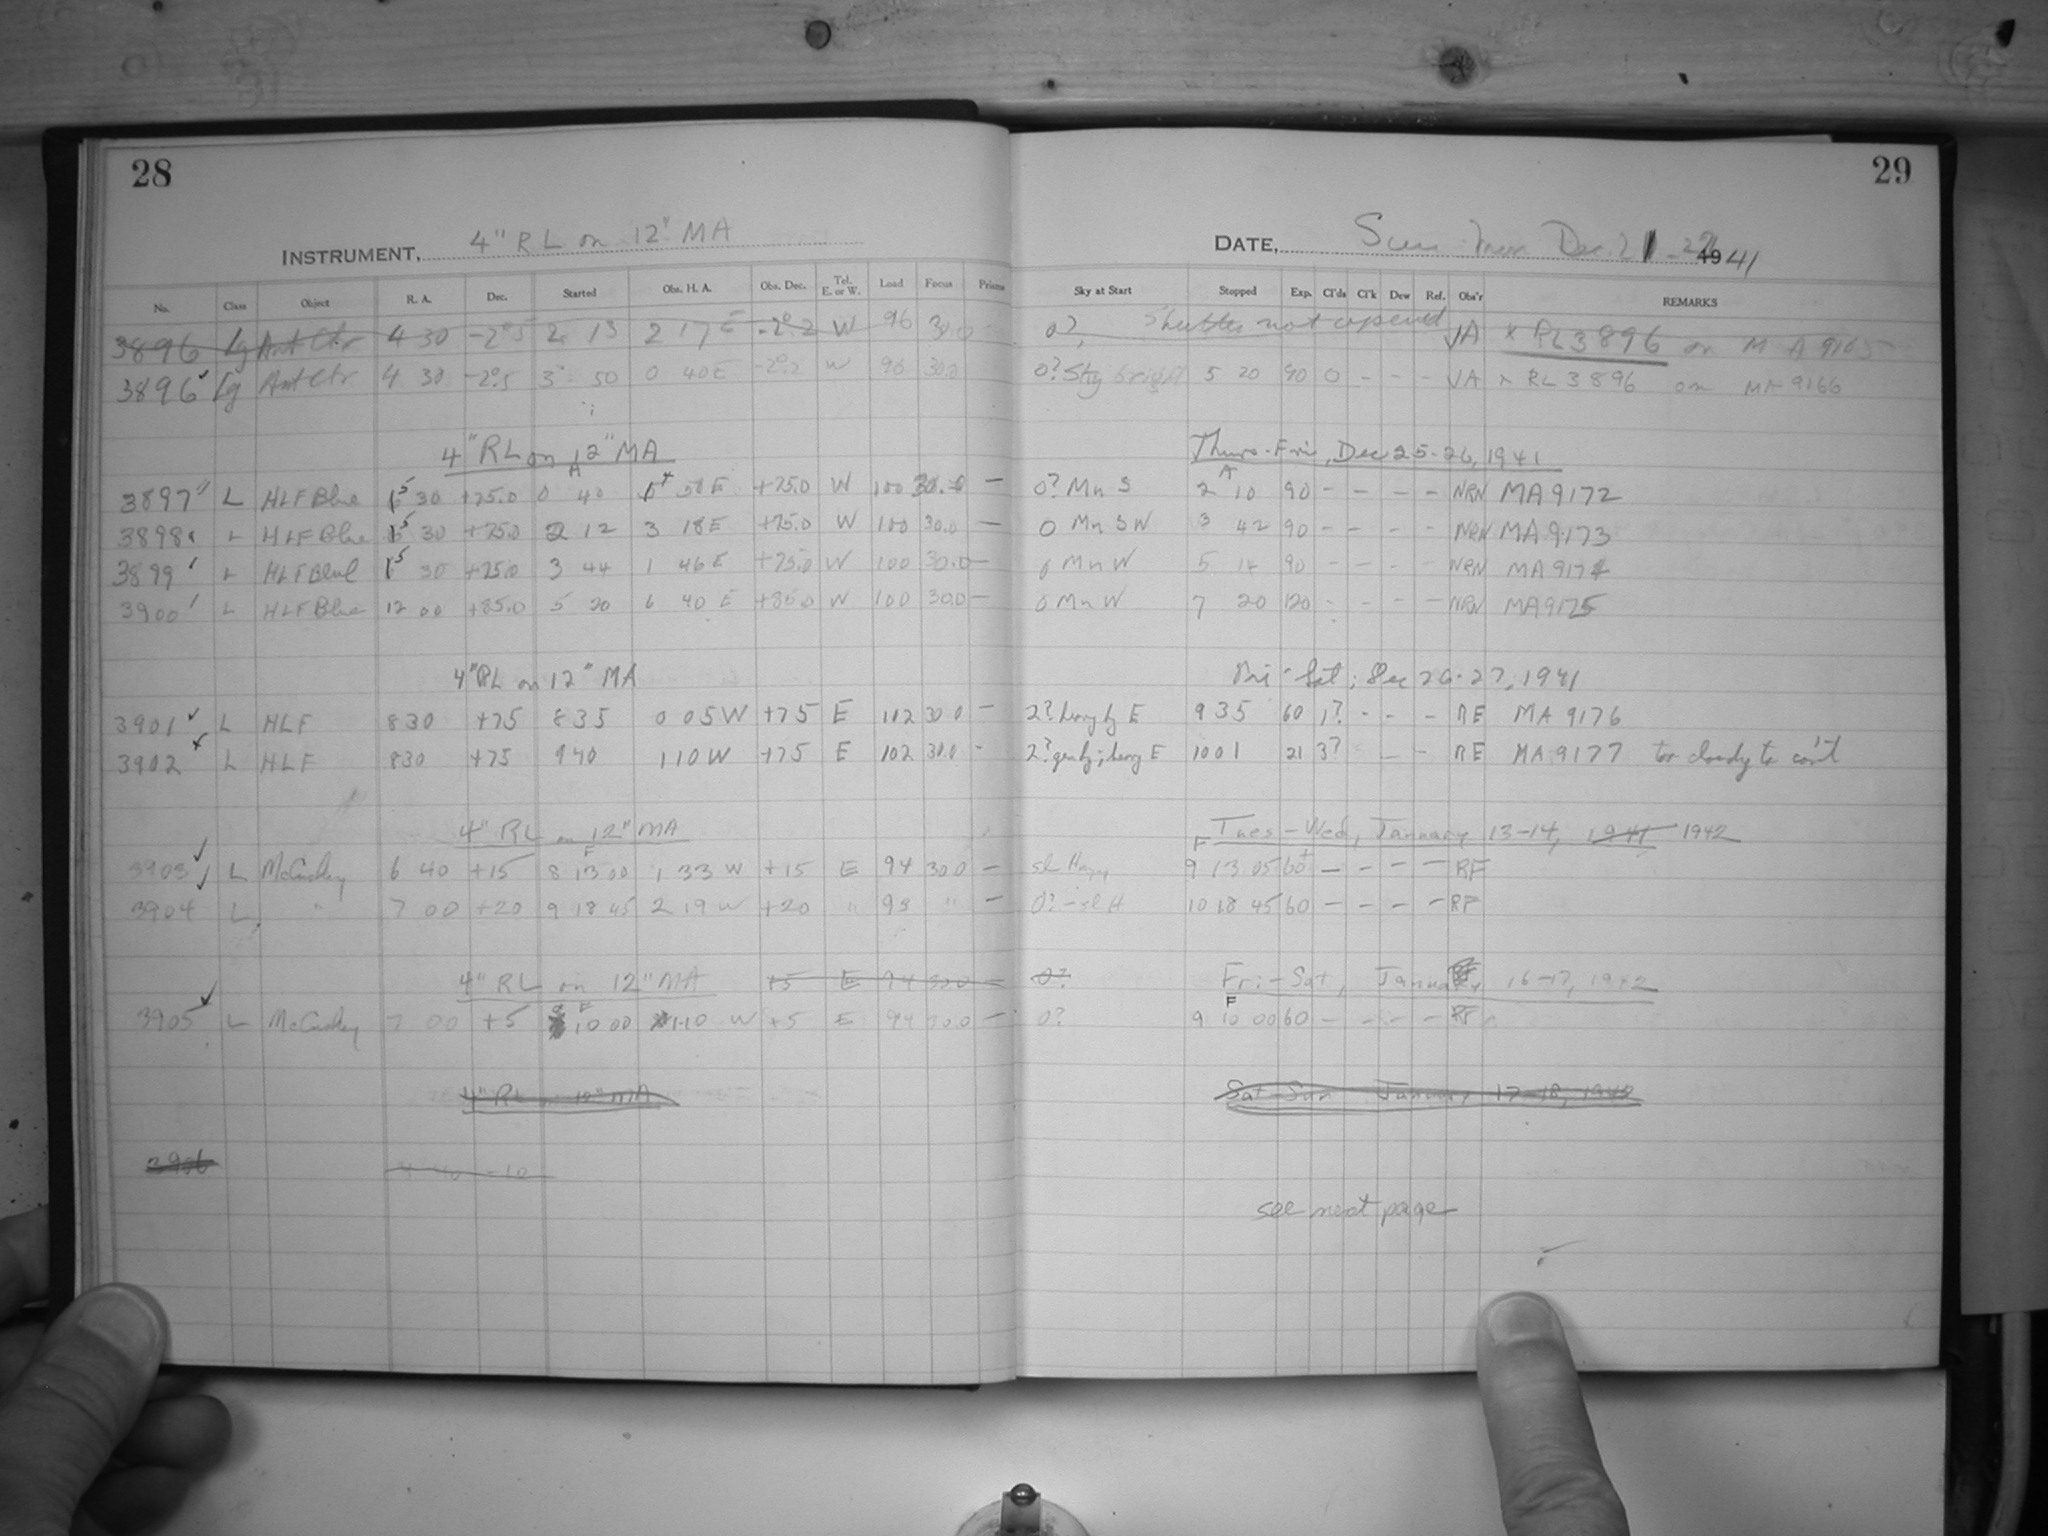 28
29
INSTRUMENT, 4" RL on 12" MA
DATE, Sun Mon Dec. 21-22 1941
No. Class Object R. A. Dec. Started Obs. H. A. Obs. Dec. Tel. E. or W. Load Focus Prisms Sky at Start Stopped Exp. Cl'ds Cl'k Dew Ref. Obs'r REMARKS
3896 Lg Ant Ctr 4 30 -2°.5 2 13 2 17 E -2°.2 W 96 30.0 0? Shutter not opened VA x RL3896 on MA 9165
3896 Lg Ant Ctr 4 30 -2°.5 3 50 0 40 E -2°.2 W 96 30.0 0? Sky bright 5 20 90 0 - - - VA x RL3896 on MA 9166
4" RL on 12" MA Thurs-Fri, Dec 25-26, 1941
3897 L HLF Blue 5 30 +75.0 0 A 40 50 E +75.0 W 100 30.0 - 0? Mn S 2 A 10 90 - - - - NRN MA 9172
3898 L HLF Blue 5 30 +75.0 2 12 3 18 E +75.0 W 100 30.0 - 0 Mn SW 3 42 90 - - - - NRN MA 9173
3899 L HLF Blue 5 30 +75.0 3 44 1 46 E +75.0 W 100 30.0 - 0 Mn W 5 14 90 - - - - NRN MA 9174
3900 L HLF Blue 12 00 +85.0 5 20 6 40 E +85.0 W 100 30.0 - 0 Mn W 7 20 120 - - - - NRN MA 9175
4" RL on 12" MA Fri-Sat; Dec 26-27, 1941
3901 L HLF 8 30 +75 8 35 0 05 W +75 E 102 30.0 - 2? E 9 35 60 1? - - - RE MA 9176
3902 L HLF 8 30 +75 9 40 1 10 W +75 E 102 30.0 - 2? E 10 01 21 3? - - RE MA 9177 too cloudy to con't
4" RL on 12" MA Tues-Wed, January 13-14, 1941 1942
3903 L McCuskey 6 40 +15 8 F 13 00 1 33 W +15 E 94 30.0 - sl Hazy 9 F 13 05 60+ - - - - RF
3904 L " 7 00 +20 9 18 45 2 19 W +20 " 93 " - 0? - sl H 10 18 45 60 - - - - RF
4" RL on 12" MA +5 E 94 30.0 0? Fri-Sat, January 16-17, 1942
3905 L McCuskey 7 00 +5 8 F 10 00 1 10 W +5 E 94 30.0 - 0? 9 F 10 00 60 - - - - RF
4" RL on 12" MA Sat-Sun January 17-18, 1942
3906
see next page